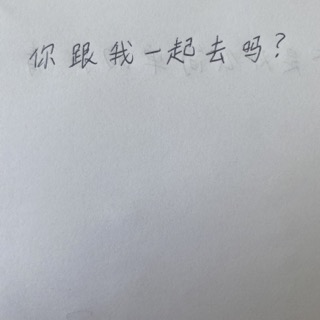 你跟我一起去吗?